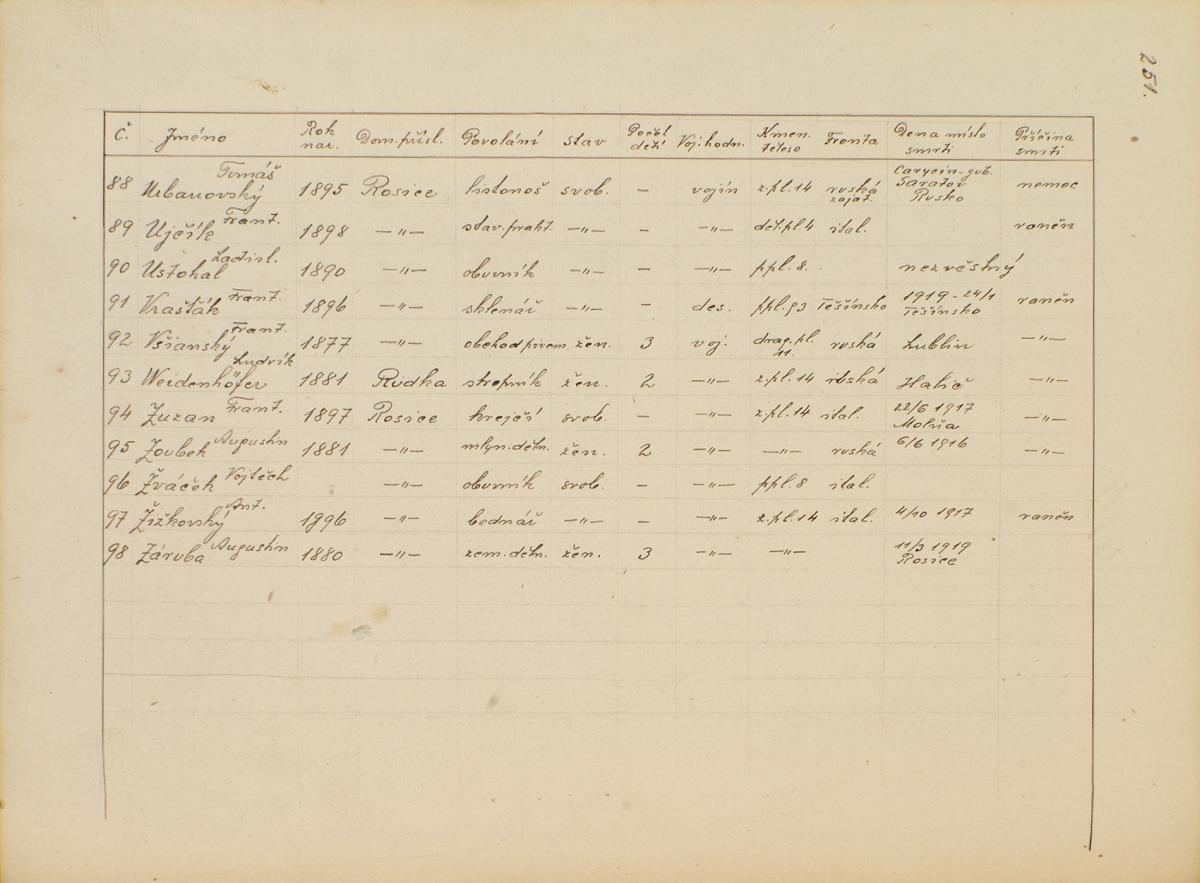 251.
Č. Jméno Rok nar. Dom. přísl. Povolání stav Počet dětí Voj. hodn. Kmen. těleso Fronta Den a místo smrti Příčina smrti
88 Urbanovský Tomáš 1895 Rosice listonoš svob. – vojín z.pl. 14 ruská zajat. Carycin-gub. Saratov Rusko nemoc
89 Ujčík Frant. 1898 —„— stav. prakt. —„— – —„— děl.pl. 4 ital. raněn
90 Ustohal Ladisl. 1890 —„— obuvník —„— – —„— ppl. 8. nezvěstný
91 Vrašťák Frant. 1896 —„— sklenář —„— – des. ppl. 93 Těšínsko 1919 - 24/1 Těšínsko raněn
92 Všianský Frant. 1877 —„— obchod pivem žen. 3 voj. drag. pl. 11. ruská Lublin —„—
93 Weidenhöfer Ludvík 1881 Rudka strojník žen. 2 —„— z.pl. 14 ruská Halič —„—
94 Zuzan Frant. 1897 Rosice krejčí svob. – —„— z.pl. 14 ital. 22/6 1917 —„—
95 Zoubek Augustin 1881 —„— mlyn. děln. žen. 2 —„— —„— ruská 6/6 1916 —„—
96 Žváček Vojtěch —„— obuvník svob. – —„— ppl. 8 ital.
97 Žižkovský Ant. 1896 —„— bednář —„— – —„— z.pl. 14 ital. 4/10 1917 raněn
98 Záruba Augustin 1880 —„— zem. děln. žen. 3 —„— —„— 11/3 1919 Rosice